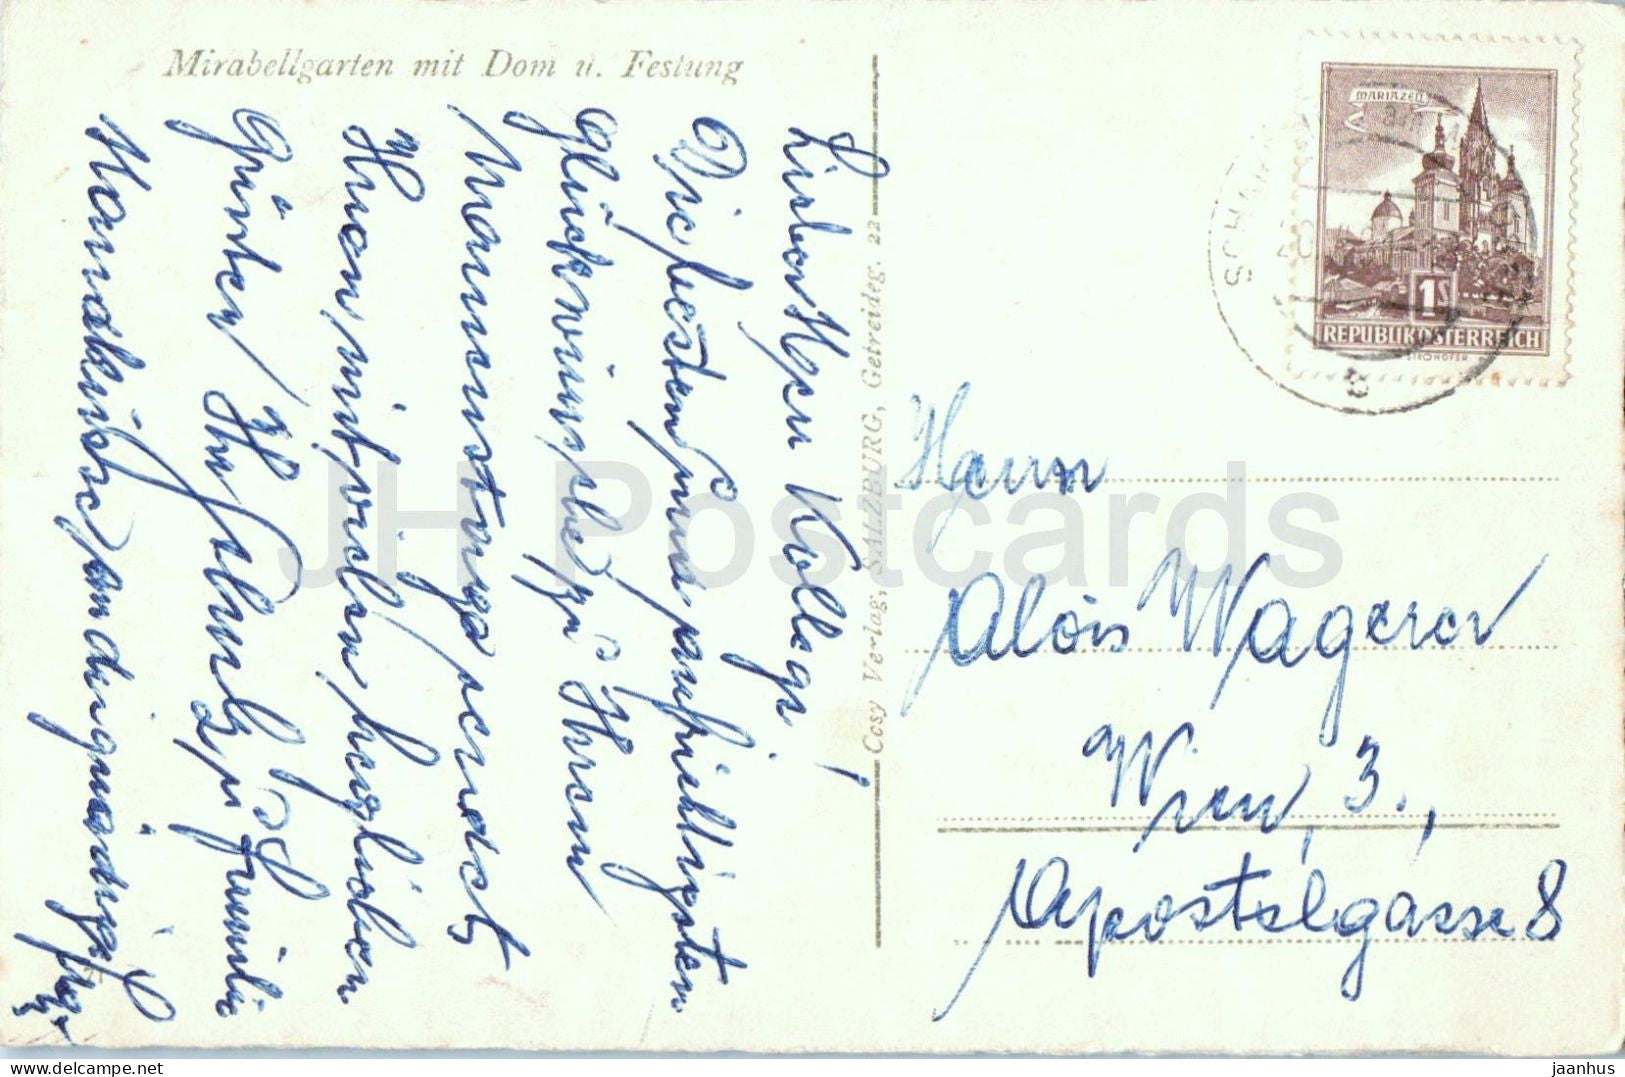 Mirabellgarten mit Dom u. Festung
Lieber Herr Kollege!
Die besten und aufrichtigsten
Glückwünsche zu Ihrem
Namenstage sendet
Ihnen mit vielen herzlichen
Grüßen Ihr
Handküsse an die gnädige
Cosy Verlag, SALZBURG, Getreideg. 22
MARIAZELL
1S
REPUBLIK ÖSTERREICH
STROHOFER
Herrn
Alois Wagerer
Wien, 3.,
Apostelgasse 8
JH Postcards
delcampe.net
jaanhus